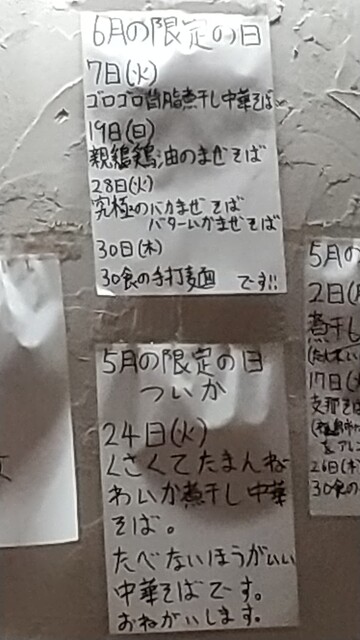 6月の限定の日
7日(火)
ゴロゴロ背脂煮干し中華そば
19日(日)
親鶏鶏油のまぜそば
28日(火)
究極のバカまぜそば
バタームかまぜそば
30日(木)
30食の手打麺 です!!
5月の限定の日
ついか
24日(火)
くさくてたまんね
わいか煮干し中華
そば。
たべないほうがいい
中華そばです。
おねがいします。
5月の
2日(
煮干し
17日(火
支那そ
26日(木
30食の